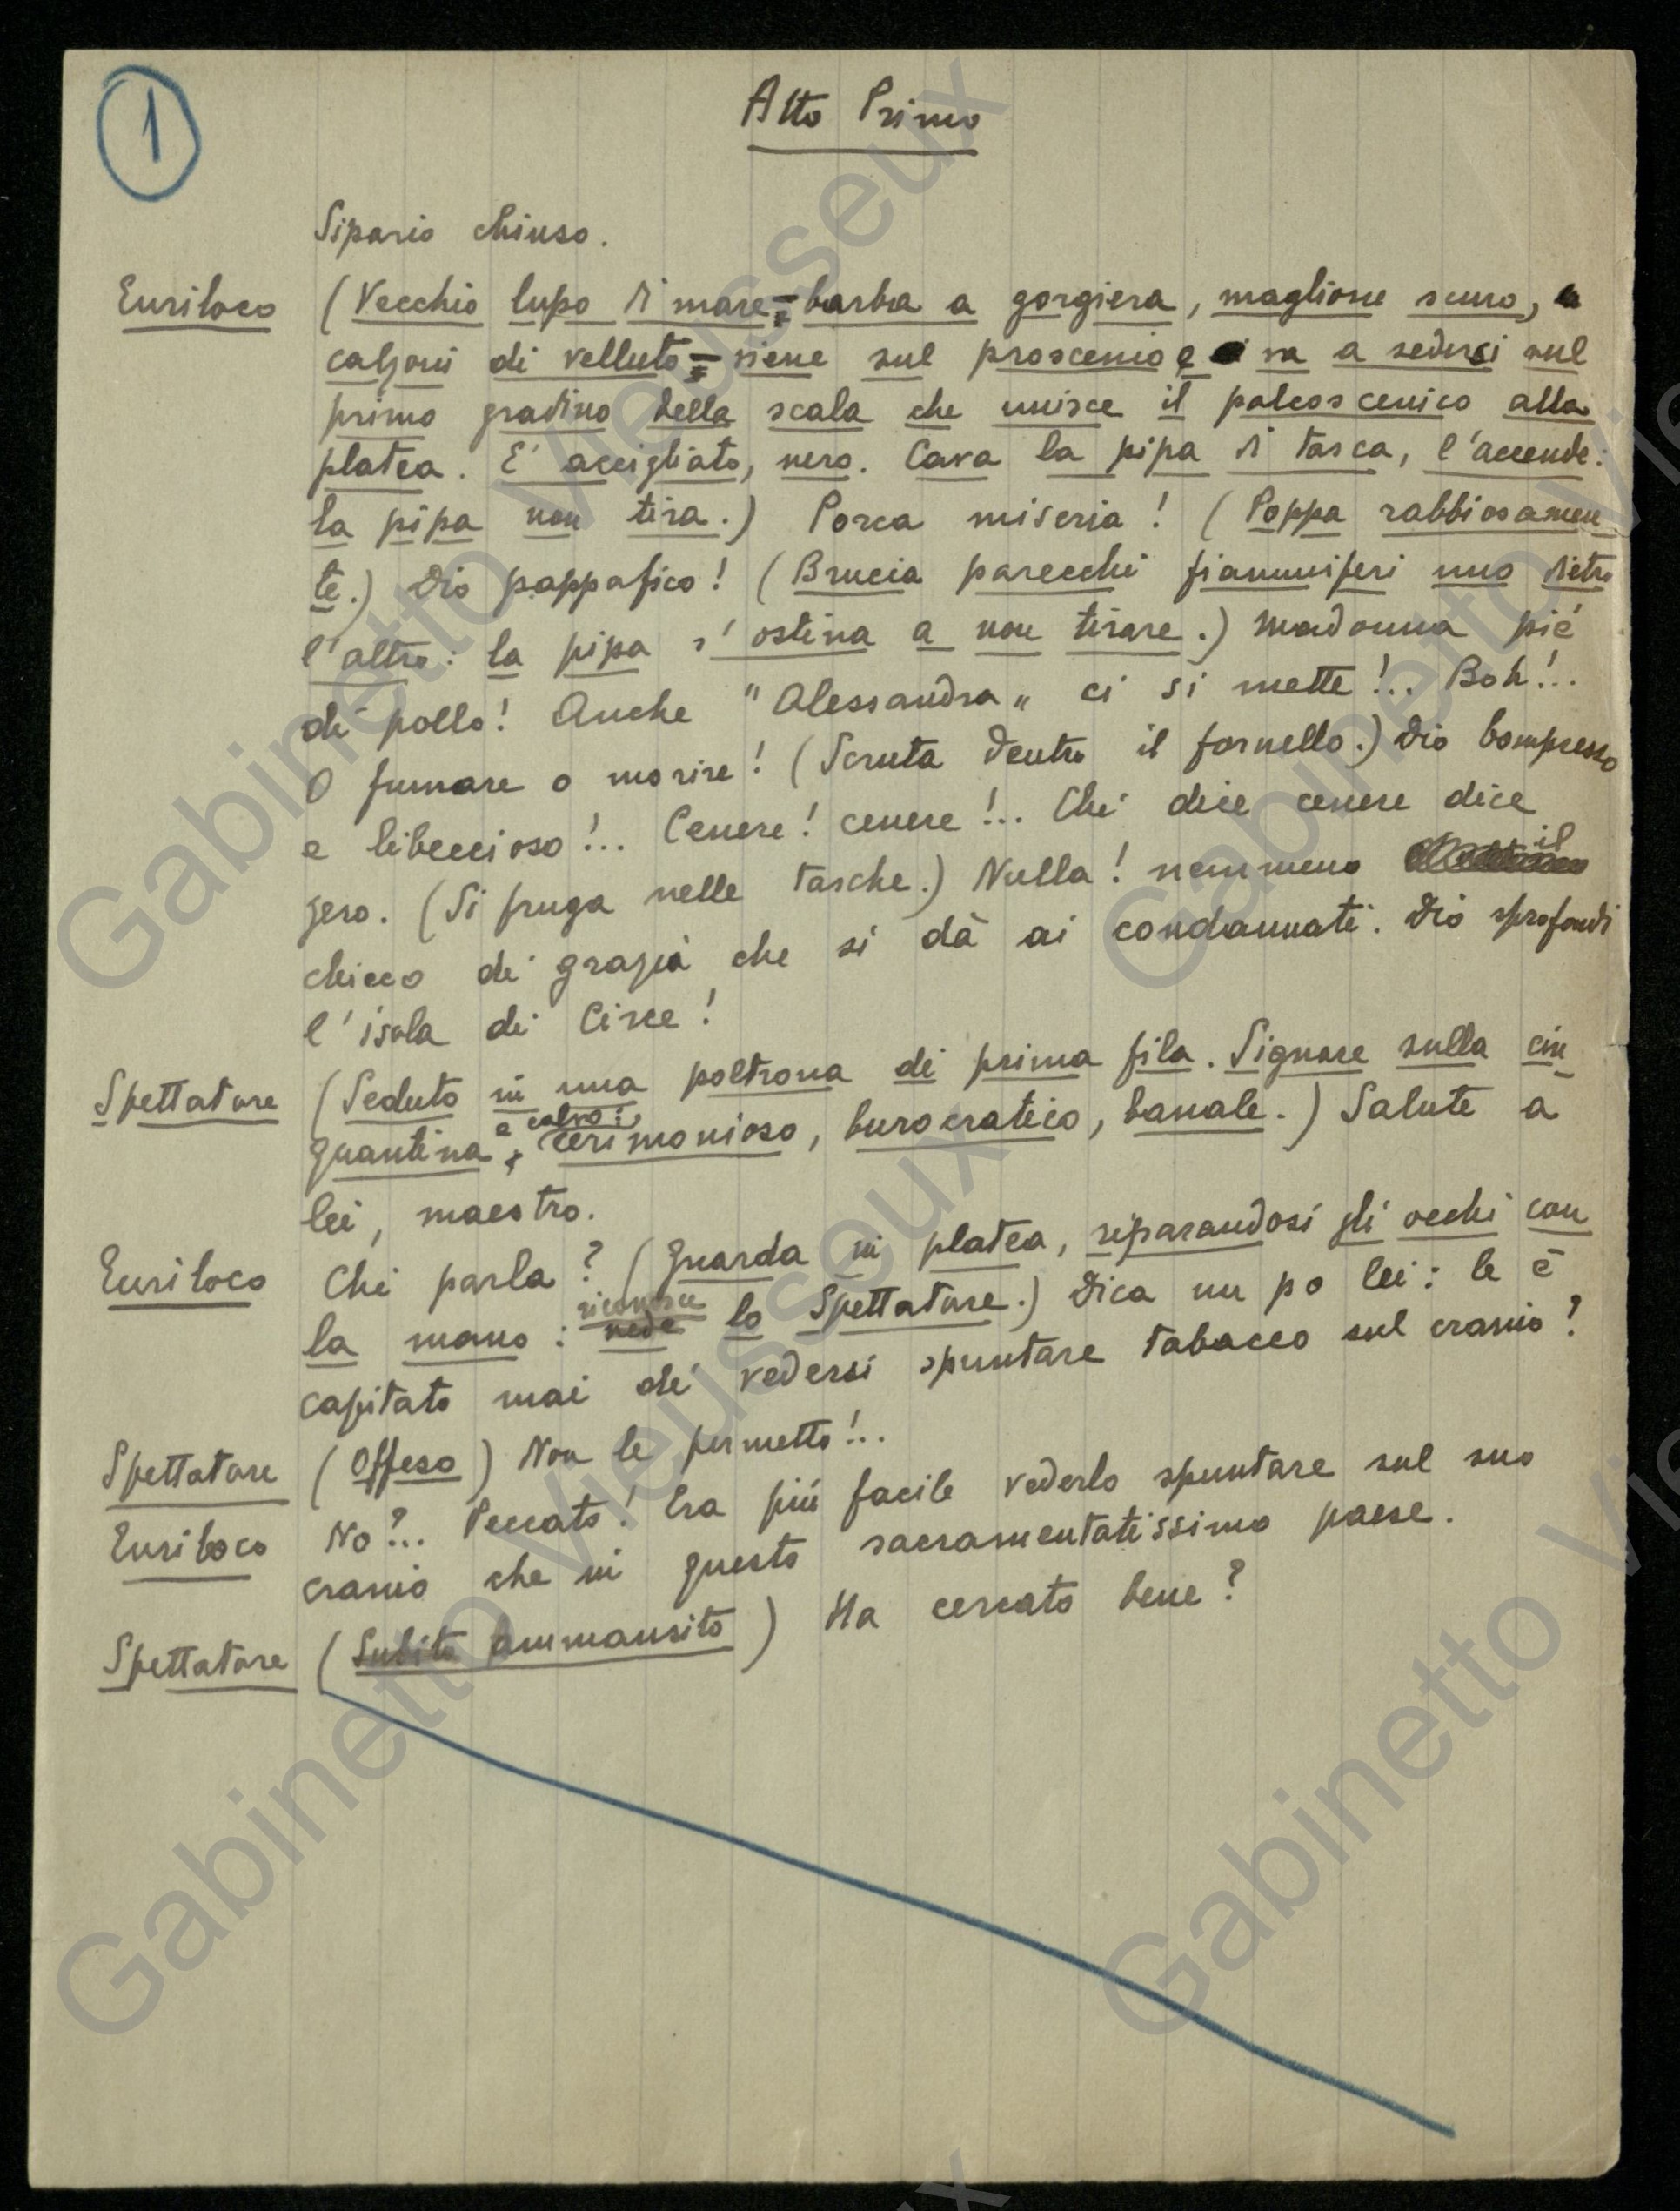 1
Atto Primo
Sipario chiuso.
Euriloco (Vecchio lupo di mare = barba a gorgiera, maglione scuro, e
calzoni di velluto = viene sul proscenio e va a sedersi sul
primo gradino della scala che unisce il palcoscenico alla
platea. E' accigliato, nero. Cava la pipa di tasca, l'accende:
la pipa non tira.) Porca miseria! (Poppa rabbiosamen
te.) Dio pappafico! (Brucia parecchi fiammiferi uno dietro
l'altro: la pipa s'ostina a non tirare.) Madonna pié
di pollo! Anche "Alessandra" ci si mette!.. Boh!..
O fumare o morire! (Scruta dentro il fornello.) Dio bompresso
e libeccioso!.. Cenere! cenere!.. Chi dice cenere dice
zero. (Si fruga nelle tasche.) Nulla! nemmeno il
chicco di grazia che si dà ai condannati. Dio sprofondi
l'isola di Circe!
Spettatore (Seduto in una poltrona di prima fila. Signore sulla cin_
quantina, e calvo: cerimonioso, burocratico, banale.) Salute a
lei, maestro.
Euriloco Chi parla? (Guarda in platea, riparandosi gli occhi con
la mano: vede riconosce lo Spettatore.) Dica un po lei: le è
capitato mai di vedersi spuntare tabacco sul cranio?
Spettatore (Offeso) Non le permetto!..
Euriloco No?.. Peccato! Era più facile vederlo spuntare sul suo
cranio che in questo sacramentatissimo paese.
Spettatore (Subito ammansito) Ha cercato bene?
Gabinetto Vieusseux
Gabinetto Vieusseux
Gabinetto Vieusseux
Gabinetto Vieusseux